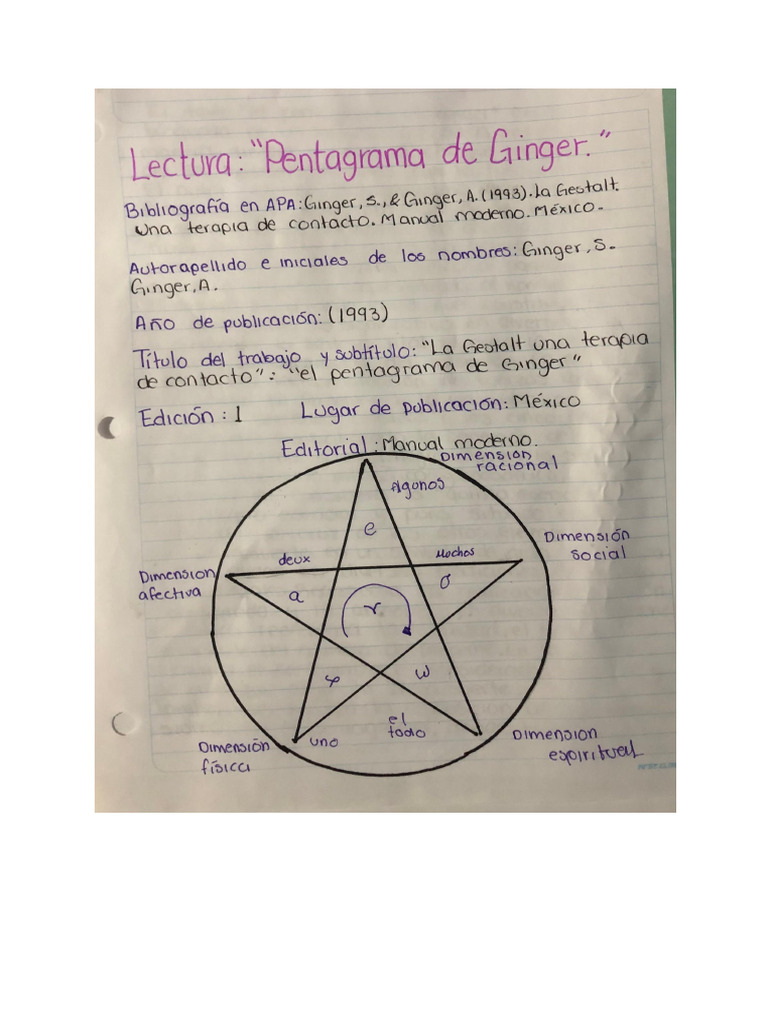 Lectura: "Pentagrama de Ginger."
Bibliografía en APA: Ginger, S., & Ginger, A. (1993). La Gestalt.
Una terapia de contacto. Manual moderno. México.
Autorapellido e iniciales de los nombres: Ginger, S.
Ginger, A.
Año de publicación: (1993)
Título del trabajo y subtítulo: "La Gestalt una terapia
de contacto": "el pentagrama de Ginger"
Edición: 1 Lugar de publicación: México
Editorial: Manual moderno.
Dimensión
racional
Algonos
e
Dimensión
social
deux
Mochos
Dimension
afectiva
a
σ
r
φ
ω
el
todo
uno
Dimensión
física
Dimension
espiritual